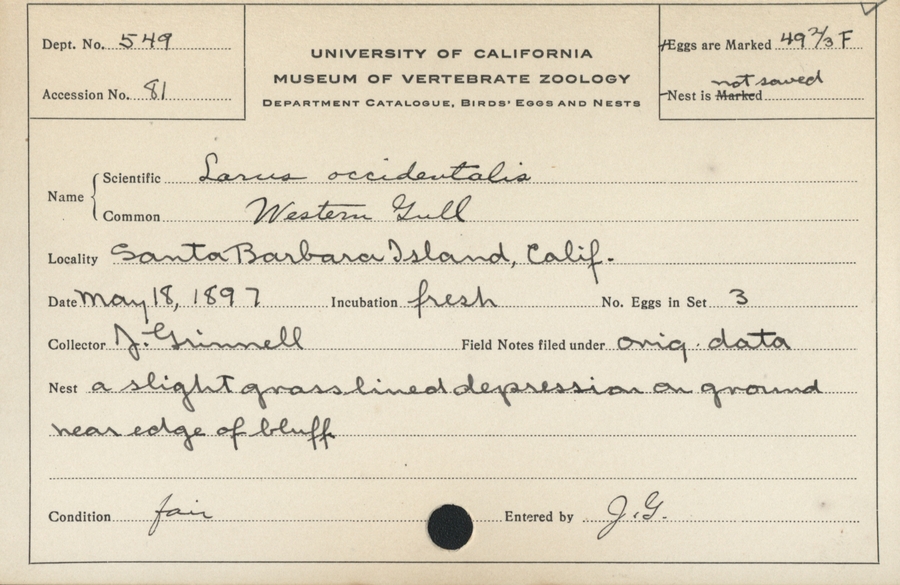 Dept. No. 549
Accession No. 81
UNIVERSITY OF CALIFORNIA
MUSEUM OF VERTEBRATE ZOOLOGY
DEPARTMENT CATALOGUE, BIRDS' EGGS AND NESTS
Eggs are Marked 49 2/3 F
not saved
Nest is Marked
Name
Scientific Larus occidentalis
Common Western Gull
Locality Santa Barbara Island, Calif.
Date May 18, 1897 Incubation fresh No. Eggs in Set 3
Collector J. Grinnell Field Notes filed under orig. data
Nest a slight grass lined depression on ground
near edge of bluff
Condition fair Entered by J.G.